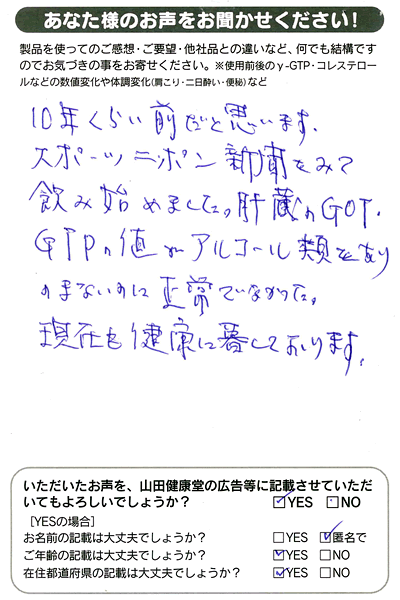 あなた様のお声をお聞かせください！
製品を使ってのご感想・ご要望・他社品との違いなど、何でも結構です
のでお気づきの事をお寄せください。※使用前後のγ-GTP・コレステロー
ルなどの数値変化や体調変化(肩こり・二日酔い・便秘)など
10年くらい前だと思います.
スポーツニッポン新聞をみて
飲み始めました。肝臓のGOT.
GTPの値がアルコール類をあまり
のまないのに正常でなかった。
現在も健康に暮しております.
いただいたお声を、山田健康堂の広告等に記載させていただ
いてもよろしいでしょうか？ ☑YES □NO
［YESの場合］
お名前の記載は大丈夫でしょうか？ □YES ☑匿名で
ご年齢の記載は大丈夫でしょうか？ ☑YES □NO
在住都道府県の記載は大丈夫でしょうか？ ☑YES □NO